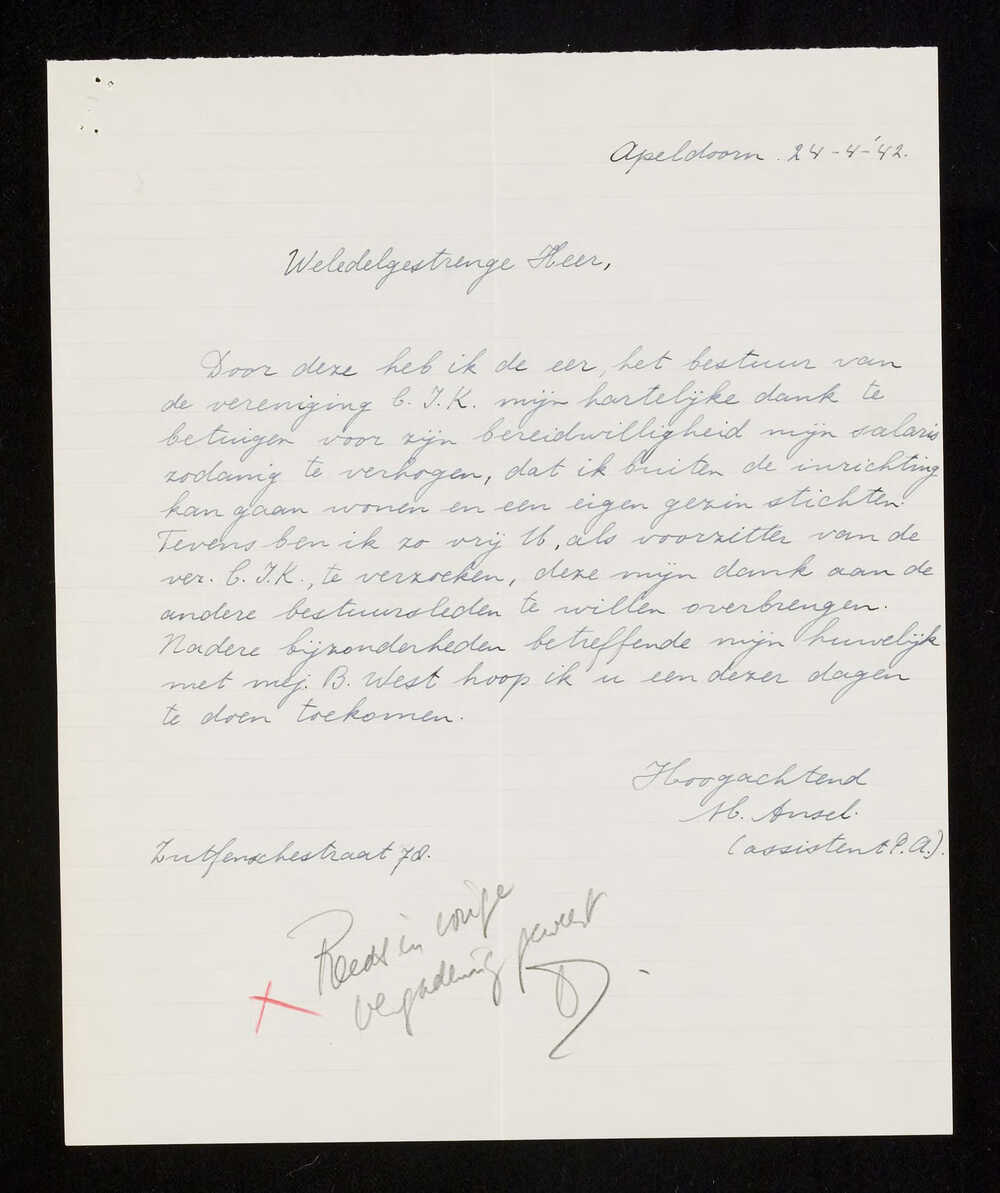 Apeldoorn. 24-4-'42.
Weledelgestrenge Heer,
Door deze heb ik de eer, het bestuur van
de vereniging C. I. K. mijn hartelijke dank te
betuigen voor zijn bereidwilligheid mijn salaris
zodanig te verhogen, dat ik buiten de inrichting
kan gaan wonen en een eigen gezin stichten.
Tevens ben ik zo vrij U, als voorzitter van de
ver. C. I. K., te verzoeken, deze mijn dank aan de
andere bestuursleden te willen overbrengen.
Nadere bijzonderheden betreffende mijn huwelijk
met mej. B. West hoop ik u een dezer dagen
te doen toekomen.
Hoogachtend
M. Ansel.
(assistent P. A.).
Zutfenschestraat 78.
Reeds in vorige
vergadering geweest